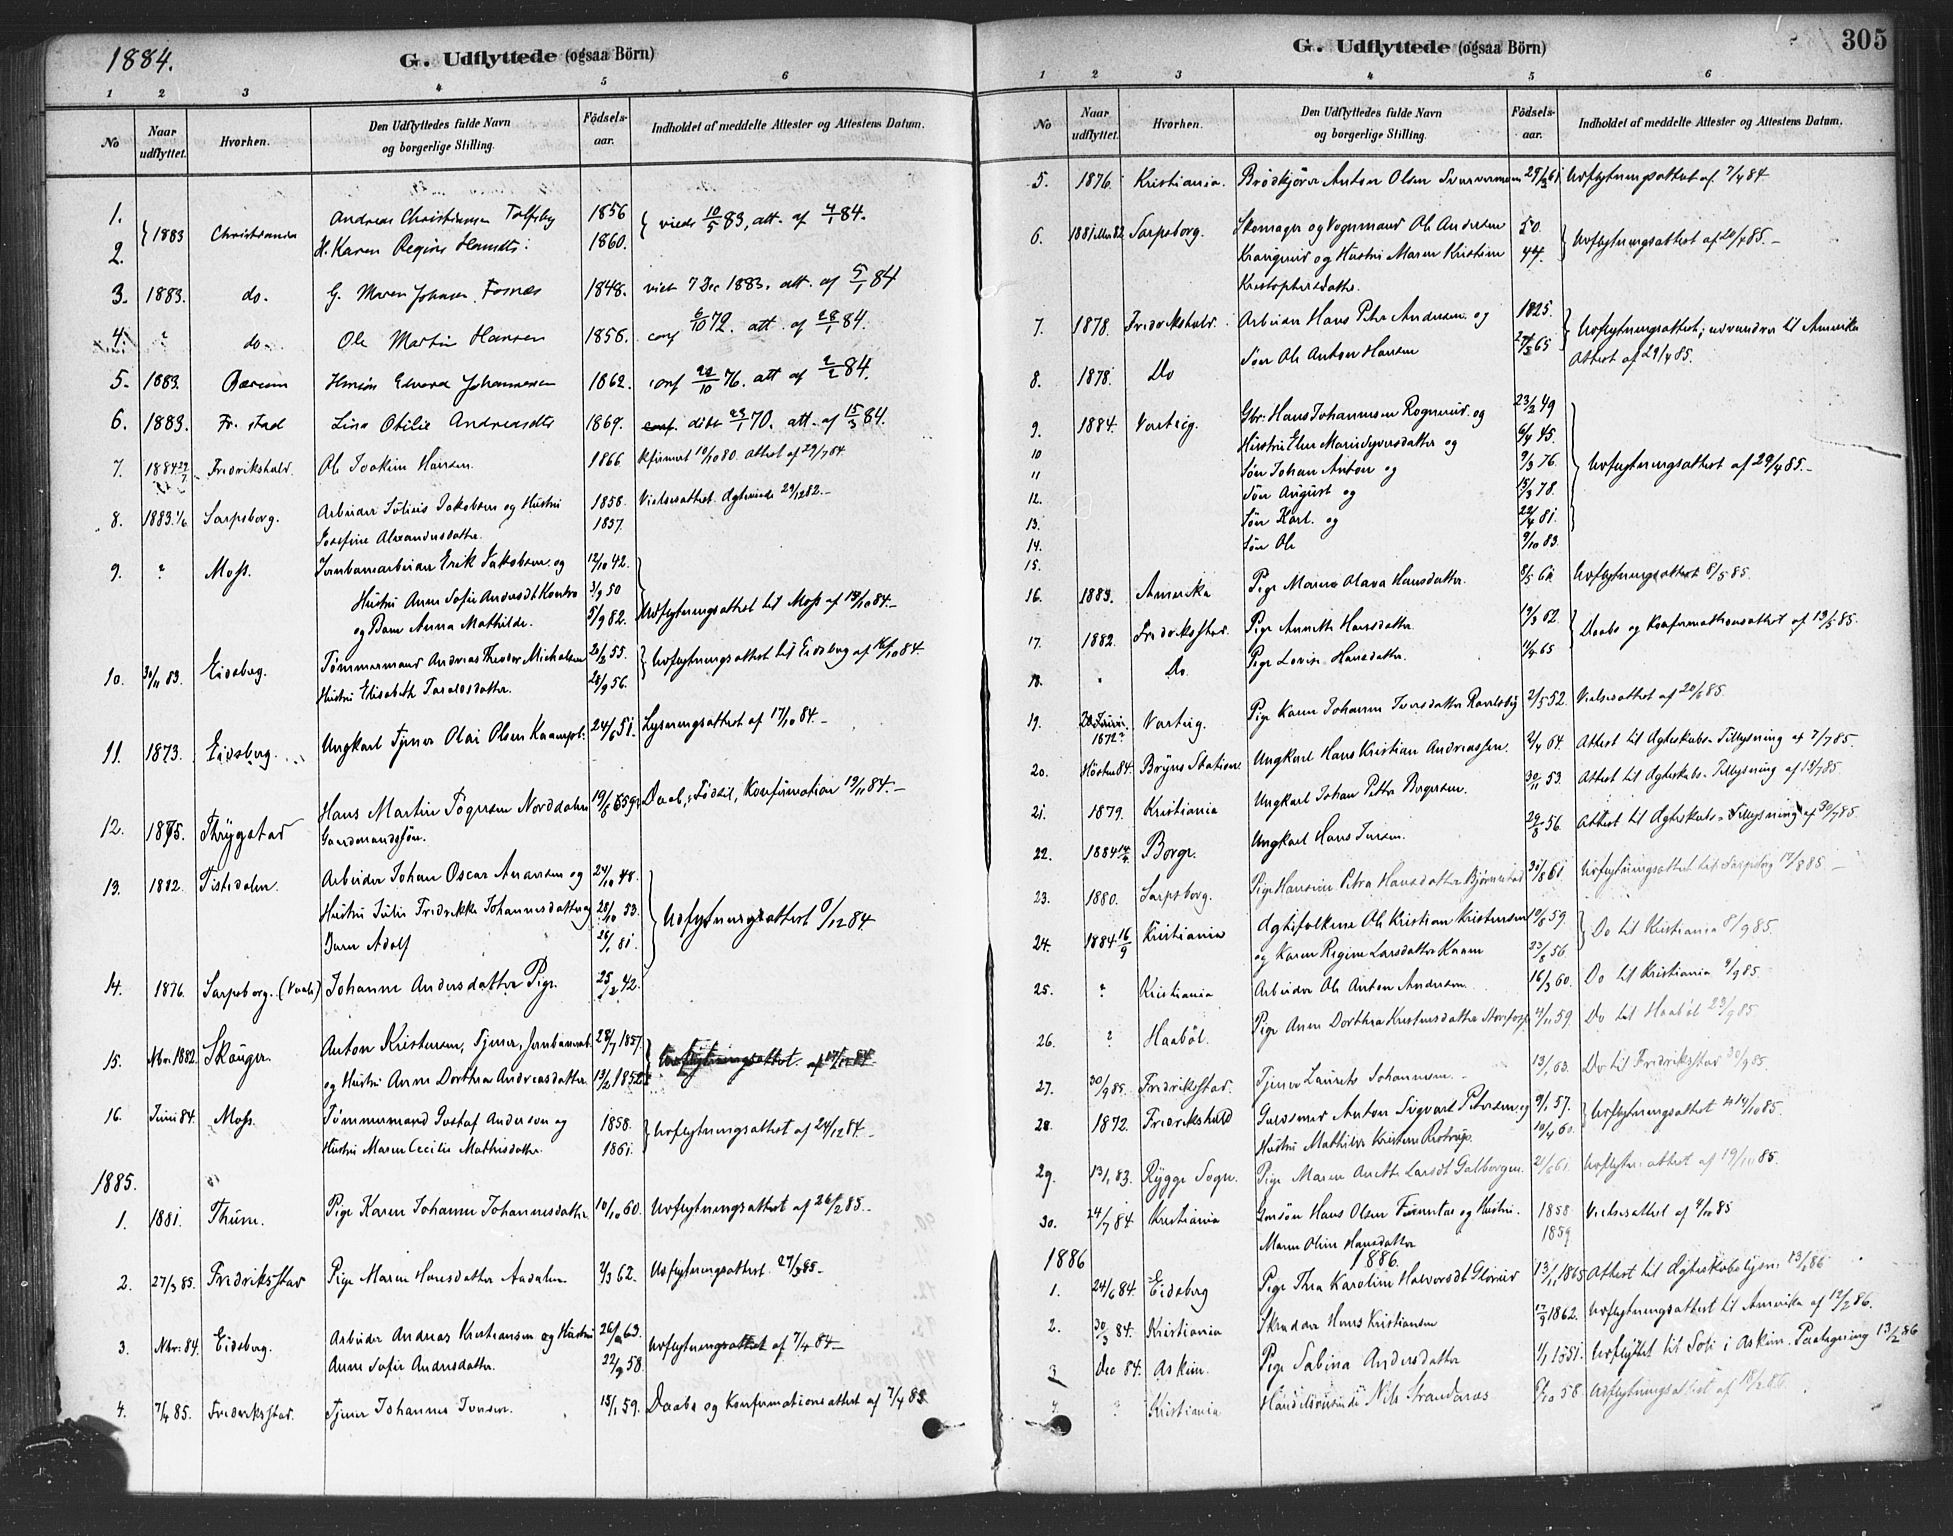 1884.
G. Udflyttede (ogsaa Börn)
1 2 3 4 5 6
No
Naar udflyttet.
Hvorhen.
Den Udflyttedes fulde Navn og borgerlige Stilling.
Födsels-aar.
Indholdet af meddelte Attester og Attestens Datum.
1. } 1883 Christiania Andreas Christiansen 1856 } viede 10/5 83, att. af 4/1 84.
2. H. Karen Regine 1860.
3. 1883. do. G. Maren Johnsen 1848. viet 7 Dec 1883. att. af 5/1 84
4. ? do. Ole Martin Hansen 1856. conf 6/10 72. att. af 28/1 84.
5. 1883. Bærum Edvard Johannessen 1862. conf 22/10 76. att af 2/2 84.
6. 1883. Fr. stad Lina Otilie Andreasdtr 1869. döbt 23/1 70. att. af 15/3 84.
7. 1884 Fredrikshald. Ole Joakim Hansen. 1866 Kfirmert 10/10 80. Attest af 29/7 84.
8. 1883. 1/6 Sarpsborg. Arbeider Julius Jakobsen og Hustru 1858. Vielsesattest. 29/12 82.
Josefine Alexandersdatter. 1857
9. ? Moss. Jernbanearbeider Erik Jakobsen og 12/10 42.
Hustru Anne Sofie Andersdt 3/9 50
og Barn Anna Mathilde. 5/9 82. Udflytningsattest til Moss af 13/10 84.
10. 30/11 83. Eidsberg. Tømmermand Andreas Theodor Michalsen 21/2 55. } Udflytningsattest til Eidsberg af 16/10 84
Hustru Elisabeth Taraldsdatter. 28/9 56.
11. 1873. Eidsberg. Ungkarl Tjener Olai Olsen 24/6 51. Lysningsattest af 17/10 84.
12. 1875. Thrygstad Hans Martin Norddalen 19/6 59 Daab, Födsel, Konfirmation 19/11 84.
Gaardmandssön.
13. 1882. Tistedalen. Arbeider Johan Oscar Andersen og 24/10 48.
Hustru Julie Fredrikke Johannesdatter og 28/10 53. } Udflytningsattest 9/12 84
Barn Adolf 26/1 81.
14. 1876. Sarpsborg. Johanne Andersdatter Pige 25/2 42.
15. Nbr. 1882. Skouger. Anton Kristensen, Tjener, 28/7 1857. Udflytningsattest.
og Hustru Anne Dorthea Andreasdatter. 13/2 1852
16. Juni 84. Moss. Tømmermand Gustaf Andersen og 1858. } Udflytningsattest af 24/12 84.
Hustru Maren Cecilie Mathisdatter. 1861.
1885.
1. 1881. Thune. Pige Karen Johanne Johannesdatter 10/10 60. Udflytningsattest af 26/2 85.
2. 27/3 85. Fredriksstad Pige Maren Hansdatter Aadalen 2/3 62. Udflytningsattest 27/3 85.
3. Nbr: 84. Eidsberg. Arbeider Andreas Kristiansen og Hustru 26/ 63. Udflytningsattest af 7/4 84
Anne Sofie Andersdatter. 22/9 58.
4. 7/4 85. Fredriksstad. Tjener Johannes Iversen. 15/1 59. Daabs og Konfirmationsattest af 7/4 85
G. Udflyttede (ogsaa Börn)
305
1 2 3 4 5 6
No
Naar udflyttet.
Hvorhen.
Den Udflyttedes fulde Navn og borgerlige Stilling.
Födsels-aar.
Indholdet af meddelte Attester og Attestens Datum.
5. 1876. Kristiania. Brødkjører Anton Olsen 61 Udflytningsattest af 7/4 84
6. 1881 eller 82 Sarpsborg. Skomager og Vognmand Ole Andersen 50. } Udflytningsattest af 20/4 85.
og Hustru Maren Kristine 44.
Kristophersdatter.
7. 1878. Fredrikshald. Arbeider Hans Peter Andersen og 1825. } Udflytningsattest; udvandrer til Amerika
8. 1878. Do Søn Ole Anton Hansen 65 Attest af 29/4 85.
9. 1884. Varteig. Gbr: Hans Johannesen Rognerud og 23/2 49
10 Hustru Elen Marie Syversdatter og 6/4 45.
11 Søn Johan Anton og 9/3 76. } Udflytningsattest af 29/4 85.
12. Søn August og 15/3 78.
13. Søn Karl. og 22/4 81.
14. Søn Ole 9/10 83.
15.
16. 1883. Amerika Pige Maren Olava Hansdatter. 8/5 62 Udflytningsattest 8/5 85.
17. 1882. Fredriksstad. Pige Annette Hansdatter. 19/3 62. } Daabs og Konfirmationsattest af 13/5 85.
18. " Do. Pige Lovise Hansdatter. 11/4 65
19. 1872? Varteig. Pige Karen Johanne Iversdatter 2/5 52. Vielsesattest af 20/6 85.
20. Høsten 84. Bryns Station. Ungkarl Hans Kristian Andreassen. 2/4 64. Attest til Ægteskabs-Tillysning af 7/7 85.
21. 1879. Kristiania Ungkarl Johan Petter Borgersen. 30/11 53. Attest til Ægteskabs-Tillysning af 13/7 85.
22. 1884 14/4 Borge. Ungkarl Hans Iversen. 29/3 56. Attest til Ægteskabs-Tillysning af 30/7 85.
23. 1880. Sarpsborg. Pige Hansine Petra Hansdatter Bjørnstad 31/8 61. Udflytningsattest til Sarpsborg 17/8 85.
24. 1884 16/9 Kristiania Ægtefolkene Ole Kristian Kristensen 19/8 59 } Do til Kristiania 8/9 85.
og Karen Regine Larsdatter 23/8 56.
25. ? Kristiania Arbeider Ole Anton Andersen 16/3 60. Do til Kristiania 9/9 85.
26. ? Haabøl. Pige Anne Dorthea Kristensdatter 4/11 59. Do til Haabøl 23/9 85.
27. 30/9 85. Fredriksstad. Tjener Laurits Johannesen. 13/1 63. Do til Fredriksstad 30/9 85.
28. 1872. Fredrikshald Guldsmed Anton Sigvart Petersen og 9/1 57. } Udflytningsattest 14/10 85.
Hustru Mathilde Kristine 10/4 60.
29. 13/1 83. Rygge Sogn. Pige Maren Anette Larsdt 2/6 61. Udflytn: attest af 19/10 85.
30. 24/7 84. Kristiania Hans Olsen og Hustru. 1858 Vielsesattest af 4/10 85
Maren Oline Hansdatter 1859
1886 1886.
1. 24/6 84. Eidsberg Pige Thea Karoline Halvorsdt 13/1 1865 Attest til Ægteskabslysn: 13/1 86
2. 30/3 84. Kristiania Skrædder Hans Kristiansen 17/9 1862. Udflytningsattest til Amerika af 12/2 86.
3 Dec 84. Askim. Pige Sabina Andersdatter 1/1 1851. Udflyttet til i Askim. Paategning 13/2 86
4. ? Kristiania Nils Strandenæs 6/10 58. Udflytningsattest af 18/2 86.